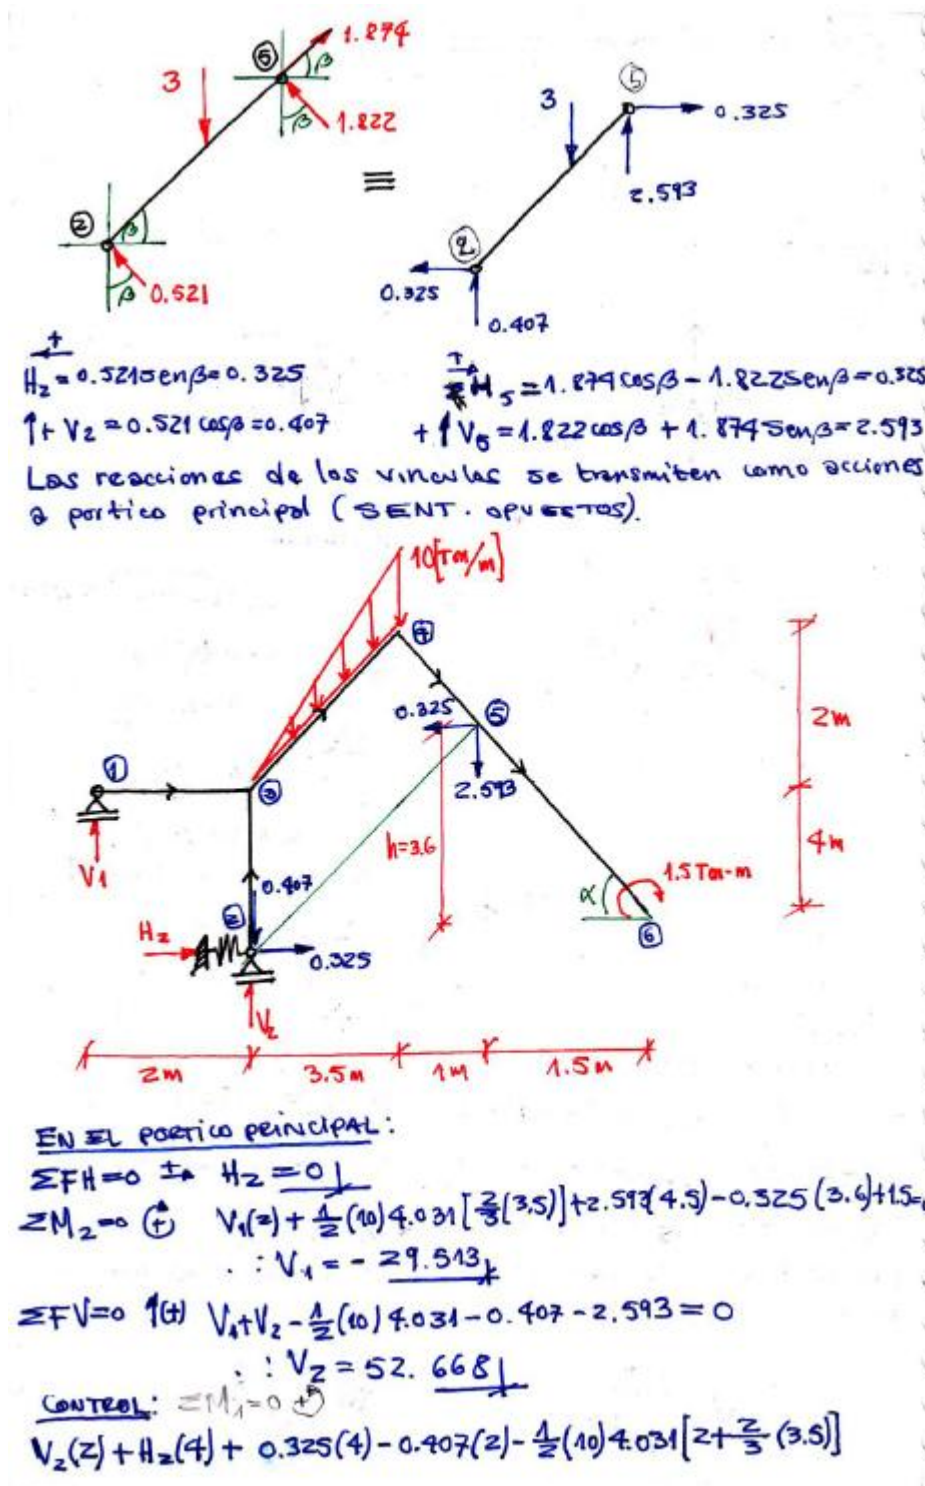 1.874
⑤ β
3
β 1.822
② β
β 0.521
≡
⑤
3 0.325
2.593
②
0.325
0.407
H2 = 0.521 sen β = 0.325
↑+ V2 = 0.521 cos β = 0.407
H5 = 1.874 cos β - 1.822 sen β = 0.325
+↑ V5 = 1.822 cos β + 1.874 sen β = 2.593
Las reacciones de los vinculos se transmiten como acciones
a portico principal (SENT. OPUESTOS).
10[Tm/m]
④
0.325 ⑤
2m
① ③ 2.593
V1 h=3.6 4m
0.407 α 1.5 Tm-m
② ⑥
H2 0.325
V2
2m 3.5m 1m 1.5m
EN EL PORTICO PRINCIPAL:
ΣFH=0 H2 = 0
ΣM2=0 (+) V1(2) + 1/2(10)4.031[2/3(3.5)] + 2.593(4.5) - 0.325(3.6) + 1.5 = 0
∴ V1 = - 29.513
ΣFV=0 ↑(+) V1+V2 - 1/2(10)4.031 - 0.407 - 2.593 = 0
∴ V2 = 52.668
CONTROL: ΣM1=0 +
V2(2) + H2(4) + 0.325(4) - 0.407(2) - 1/2(10)4.031[2+2/3(3.5)]